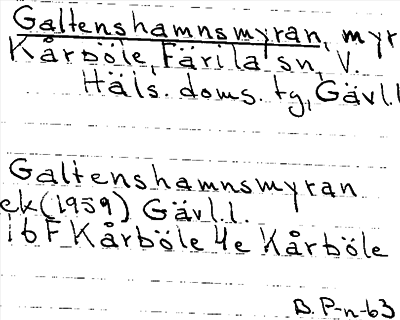 Galtenshamnsmyran, myr
Kårböle, Färila sn, V.
Häls. doms. tg, Gävl.l
Galtenshamnsmyran
ek (1959) Gävl.l.
16 F Kårböle 4e Kårböle
B. P-n-63